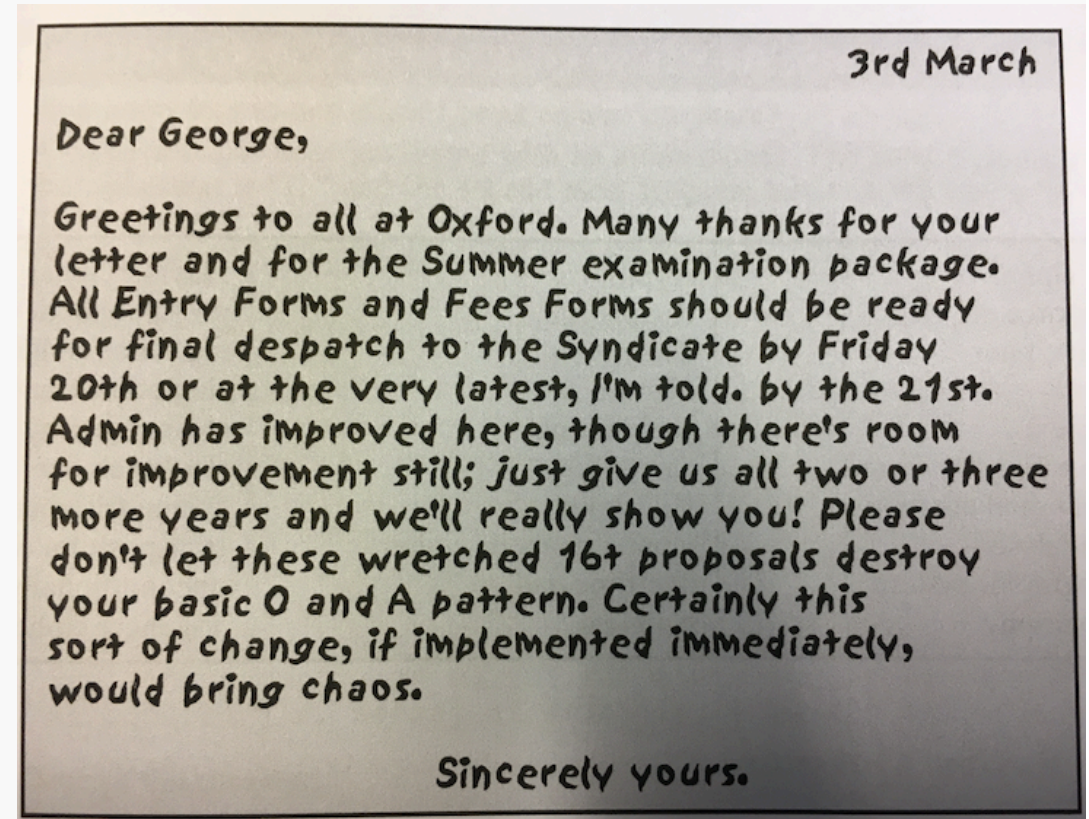 3rd March
Dear George,
Greetings to all at Oxford. Many thanks for your
letter and for the Summer examination package.
All Entry Forms and Fees Forms should be ready
for final despatch to the Syndicate by Friday
20th or at the very latest, I'm told. by the 21st.
Admin has improved here, though there's room
for improvement still; just give us all two or three
more years and we'll really show you! Please
don't let these wretched 16+ proposals destroy
your basic O and A pattern. Certainly this
sort of change, if implemented immediately,
would bring chaos.
Sincerely yours.